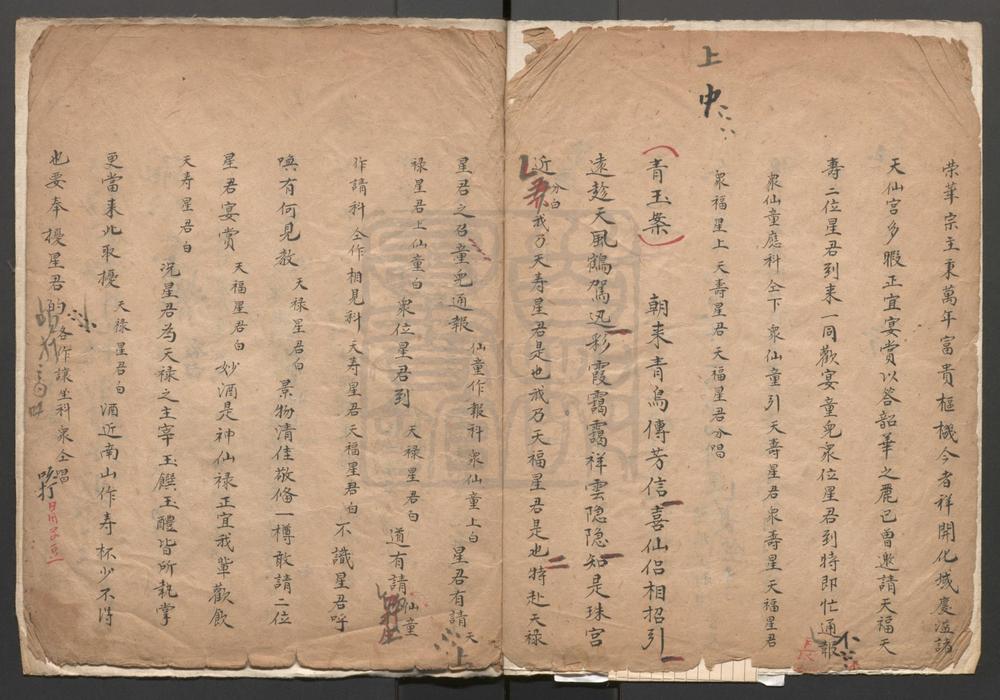 上
中
荣華宗主秉萬年富貴樞機今者祥開化域慶溢諸
天仙宮多暇正宜宴賞以答韶華之麗已曾邀請天福天
壽二位星君到来一同歡宴童兒衆位星君到時即忙通報
衆仙童應科仝下年衆仙童引天壽星君衆壽星天福星君
衆福星上天壽星君天福星君分唱
青玉案 朝来青鳥傳芳信喜仙侣相招引
遠趁天風鶴駕迅彩霞靄靄祥雲隐隐知是珠宮
近 分白 我乃天壽星君是也我乃天福星君是也特赴天禄
星君之 童兒通報 仙童作報科衆仙童上白 星君有請 天
禄星君上仙童白 衆位星君到 天禄星君白 道有請 仙童
作請科仝作相見科天壽星君天福星君白 不識星君呼
喚有何見教 天禄星君白 景物清佳敬備一樽敢請二位
星君宴賞 天福星君白 妙酒是神仙禄正宜我輩歡飲
天壽星君白 况星君為天禄之主宰玉饌玉醴皆所執掌
更當来此取擾 天禄星君白 酒近南山作壽杯少不得
也要奉擾星君的 各作讓坐科衆仝唱